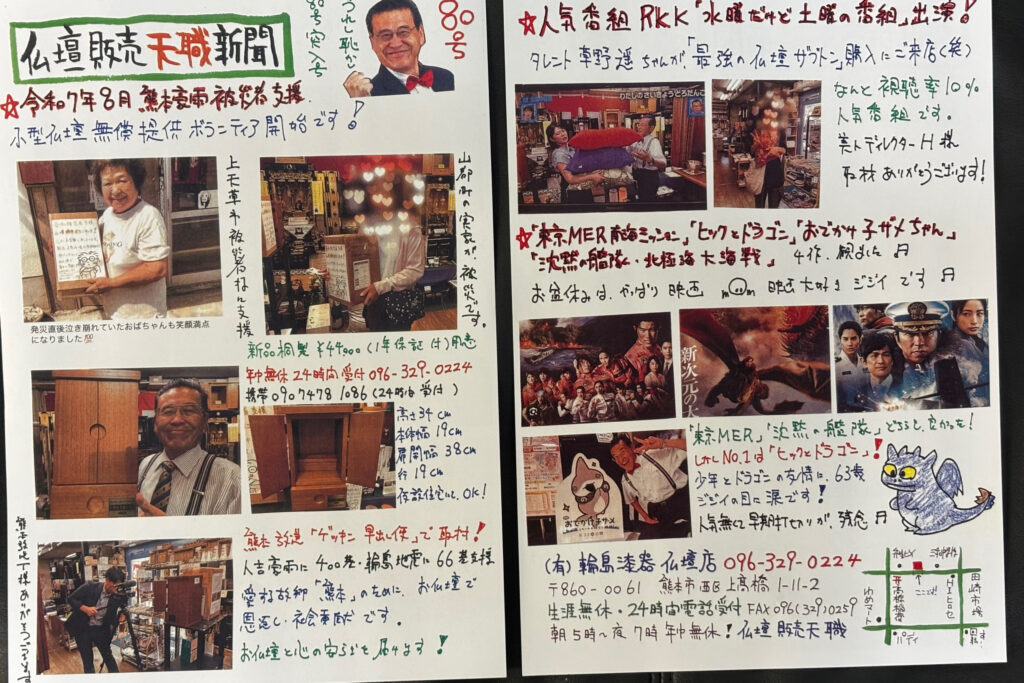 仏壇販売天職新聞
うれし恥かし
80号突入号
80号
☆令和7年8月 熊本豪雨被災者支援
小型仏壇無償提供ボランティア開始です!
上天草市被災者様に支援
山都町の実家が、被災です。
発災直後泣き崩れていたおばちゃんも笑顔満点
になりました💯
新品桐製 ¥44,900 (1年保証付)用意
年中無休24時間受付 096-329-0224
携帯 090 7478 1086 (24時間受付)
高さ34cm
本体幅19cm
扉開幅38cm
行19cm
仮設住宅にも、OK!
熊本放送「ゲツキン早出し便」で取材!
人吉豪雨に400基・輪島地震に66基支援
愛する故郷「熊本」のために、お仏壇で
恩返し・社会奉仕です。
お仏壇と心の安らぎを届けます!
☆人気番組RKK「水曜だけど土曜の番組」出演!
タレント草野遥ちゃんが「最強の仏壇ザブトン」購入にご来店(笑)
わたしのさいきょうとろたんご
なんと視聴率10%
人気番組です。
美人ディレクターH様
取材ありがとうございます!
☆「東京MER南海ミッション」「ヒックとドラゴン」「おでかけ子ザメちゃん」
「沈黙の艦隊・北極海大海戦」4作、観ました♬
お盆休みは、やっぱり映画 映画大好きジジイです♬
新次元の大
おでかけ子ザメ
「東京MER」「沈黙の艦隊」どちらも、良かった!
しかしNo.1は「ヒックとドラゴン」!
少年とドラゴンの友情に、63歳
ジジイの目に涙です!
人気無くて早期打ち切りが、残念♬
(有)輪島漆器仏壇店 096-329-0224
〒860-0061 熊本市西区上高橋1-11-2
生涯無休・24時間電話受付 FAX 096(329)0259
朝5時~夜7時年中無休!仏壇販売天職
ここです!
ゆめマート
田崎市場